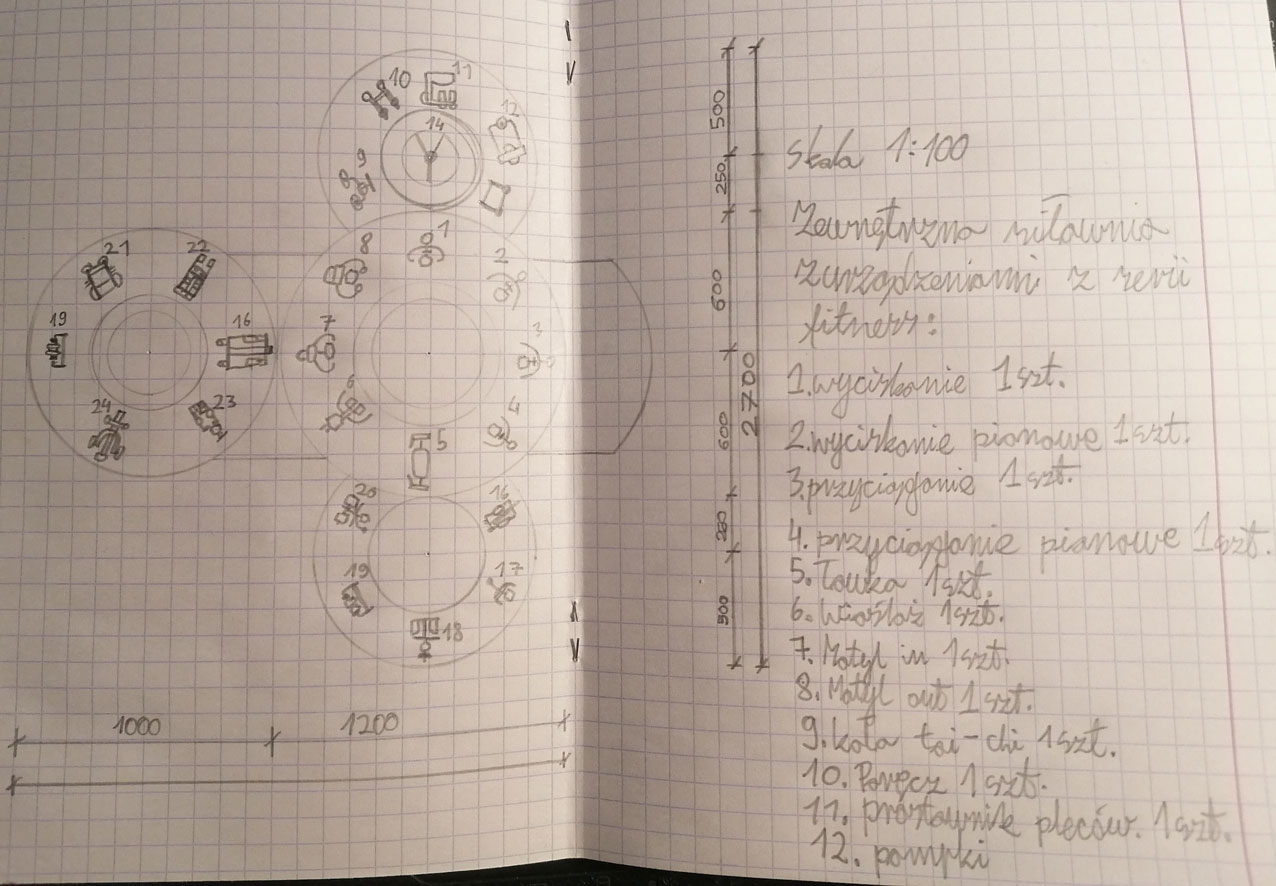 10
11
12
14
9
8
1
2
21
22
7
3
19
16
6
4
24
23
5
20
16
19
17
18
1000
1200
500
250
600
2700
600
250
500
Skala 1:100
Zewnętrzna siłownia
z urządzeniami z serii
fitness:
1. wyciskanie 1szt.
2. wyciskanie pionowe 1szt.
3. przyciąganie 1szt.
4. przyciąganie pionowe 1szt.
5. Ławka 1szt.
6. Wioślaż 1szt.
7. Motyl in 1szt.
8. Motyl out 1szt.
9. koła tai-chi 1szt.
10. Poręcz 1szt.
11. prostownik pleców. 1szt.
12. pompki